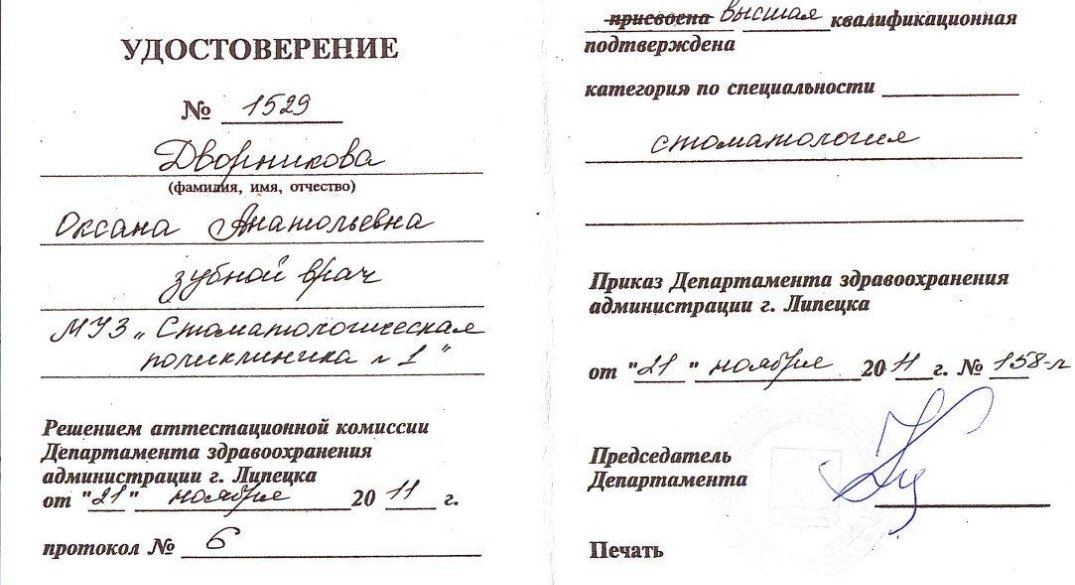 УДОСТОВЕРЕНИЕ
№ 1529
Дворникова
(фамилия, имя, отчество)
Оксана Анатольевна
зубной врач
МУЗ "Стоматологическая
поликлиника № 1"
Решением аттестационной комиссии
Департамента здравоохранения
администрации г. Липецка
от "21" ноября 2011 г.
протокол № 6
присвоена высшая квалификационная
подтверждена
категория по специальности
стоматология
Приказ Департамента здравоохранения
администрации г. Липецка
от "21" ноября 2011 г. № 158-л
Председатель
Департамента
Печать